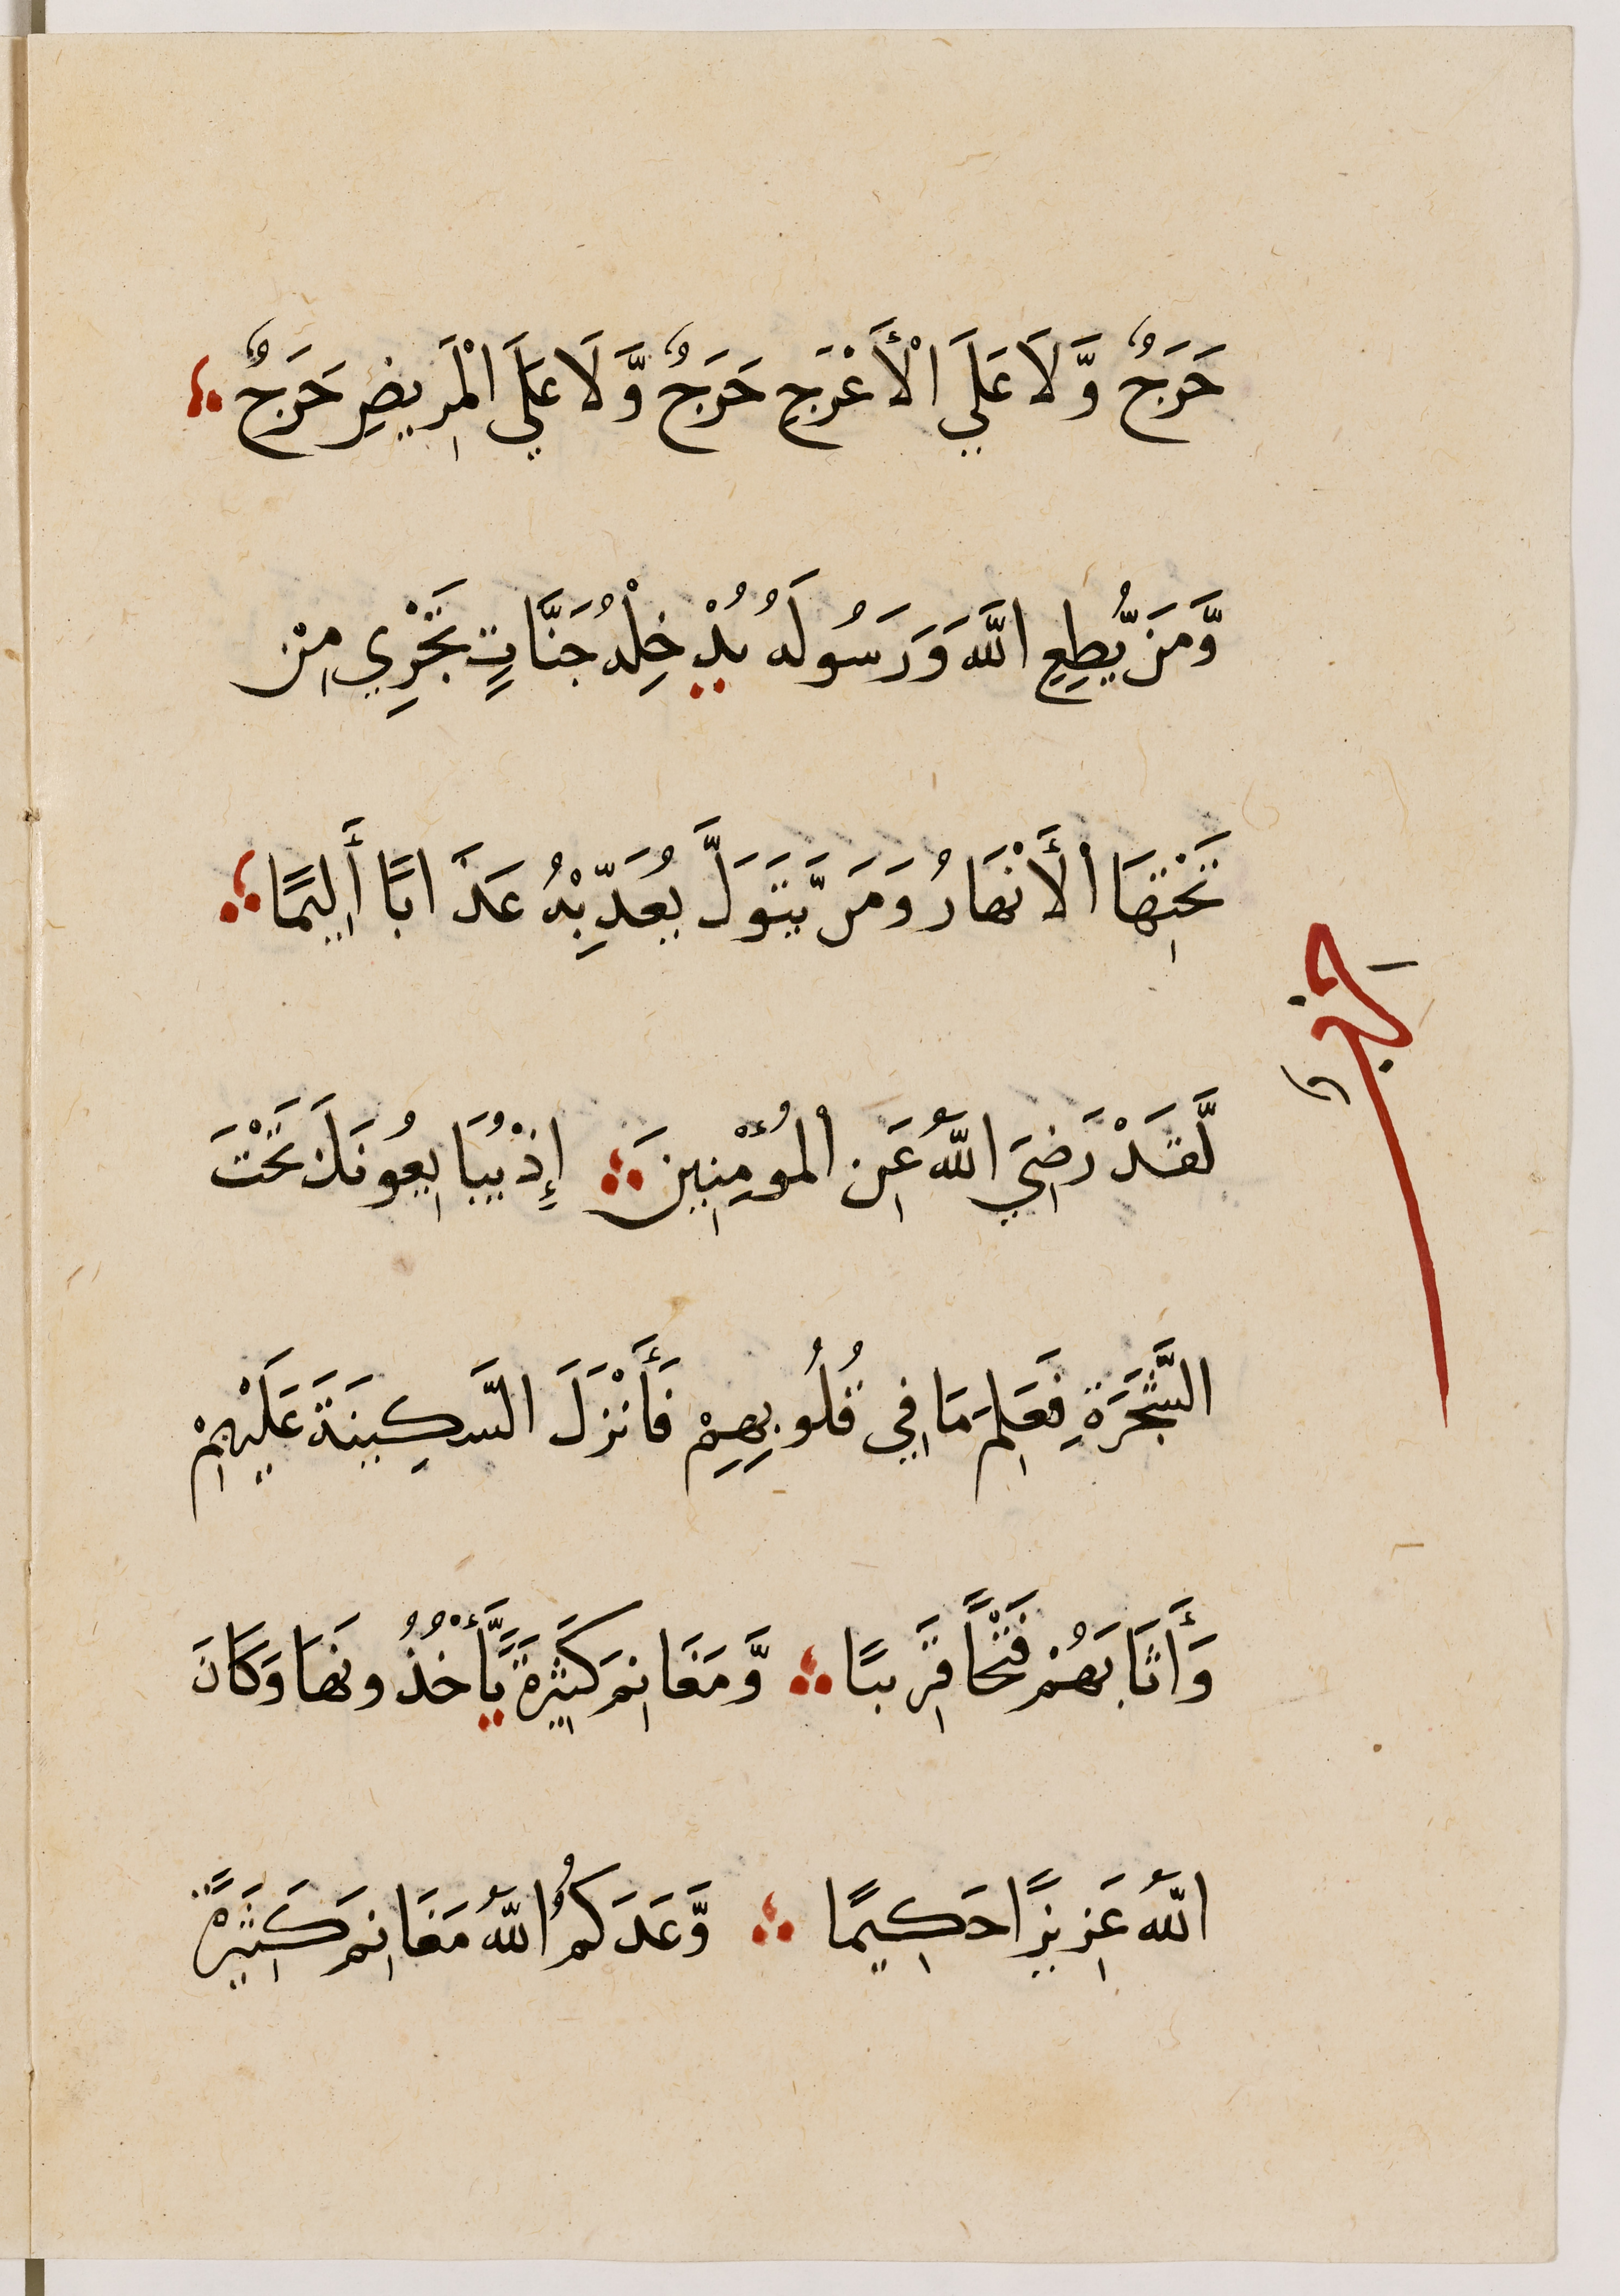 حَرَجٌ وَّلَا عَلَي الْأَعْرَجِ حَرَجٌ وَّلَا عَلَي الْمَرِيضِ حَرَجٌ
وَّمَن يُّطِعِ اللَّهَ وَرَسُولَهُ يُدْخِلْهُ جَنَّاتٍ تَجْرِي مِن
تَحْتِهَا الْأَنْهَارُ وَمَن يَّتَوَلَّ يُعَذِّبْهُ عَذَابًا أَلِيمًا
حزب
لَّقَدْ رَضِيَ اللَّهُ عَنِ الْمُؤْمِنِينَ إِذْ يُبَايِعُونَكَ تَحْتَ
الشَّجَرَةِ فَعَلِمَ مَا فِي قُلُوبِهِمْ فَأَنْزَلَ السَّكِينَةَ عَلَيْهِمْ
وَأَثَابَهُمْ فَتْحًا قَرِيبًا وَّمَغَانِمَ كَثِيرَةً يَّأْخُذُونَهَا وَكَانَ
اللَّهُ عَزِيزًا حَكِيمًا وَّعَدَكُمُ اللَّهُ مَغَانِمَ كَثِيرَةً